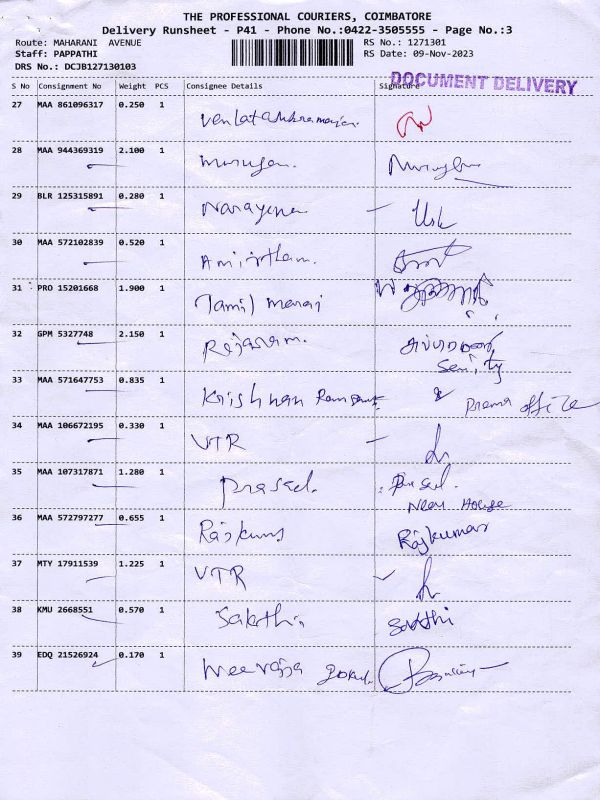 THE PROFESSIONAL COURIERS, COIMBATORE
Delivery Runsheet - P41 - Phone No.:0422-3505555 - Page No.:3
Route: MAHARANI AVENUE RS No.: 1271301
Staff: PAPPATHI RS Date: 09-Nov-2023
DRS No.: DCJB127130103
DOCUMENT DELIVERY
S No Consignment No Weight PCS Consignee Details Signature
27 MAA 861096317 0.250 1
28 MAA 944369319 2.100 1 Murugan.
29 BLR 125315891 0.280 1 Narayana
30 MAA 572102839 0.520 1 Amirtham.
31 PRO 15201668 1.900 1 Tamil
32 GPM 5327748 2.150 1 Rajaram.
33 MAA 571647753 0.835 1 Krishnan Prema office
34 MAA 106672195 0.330 1 VTR
35 MAA 107317871 1.280 1
Near House
36 MAA 572797277 0.655 1 Rajkumar
37 MTY 17911539 1.225 1 VTR
38 KMU 2668551 0.570 1 Sakthi Sakthi
39 EDQ 21526924 0.170 1